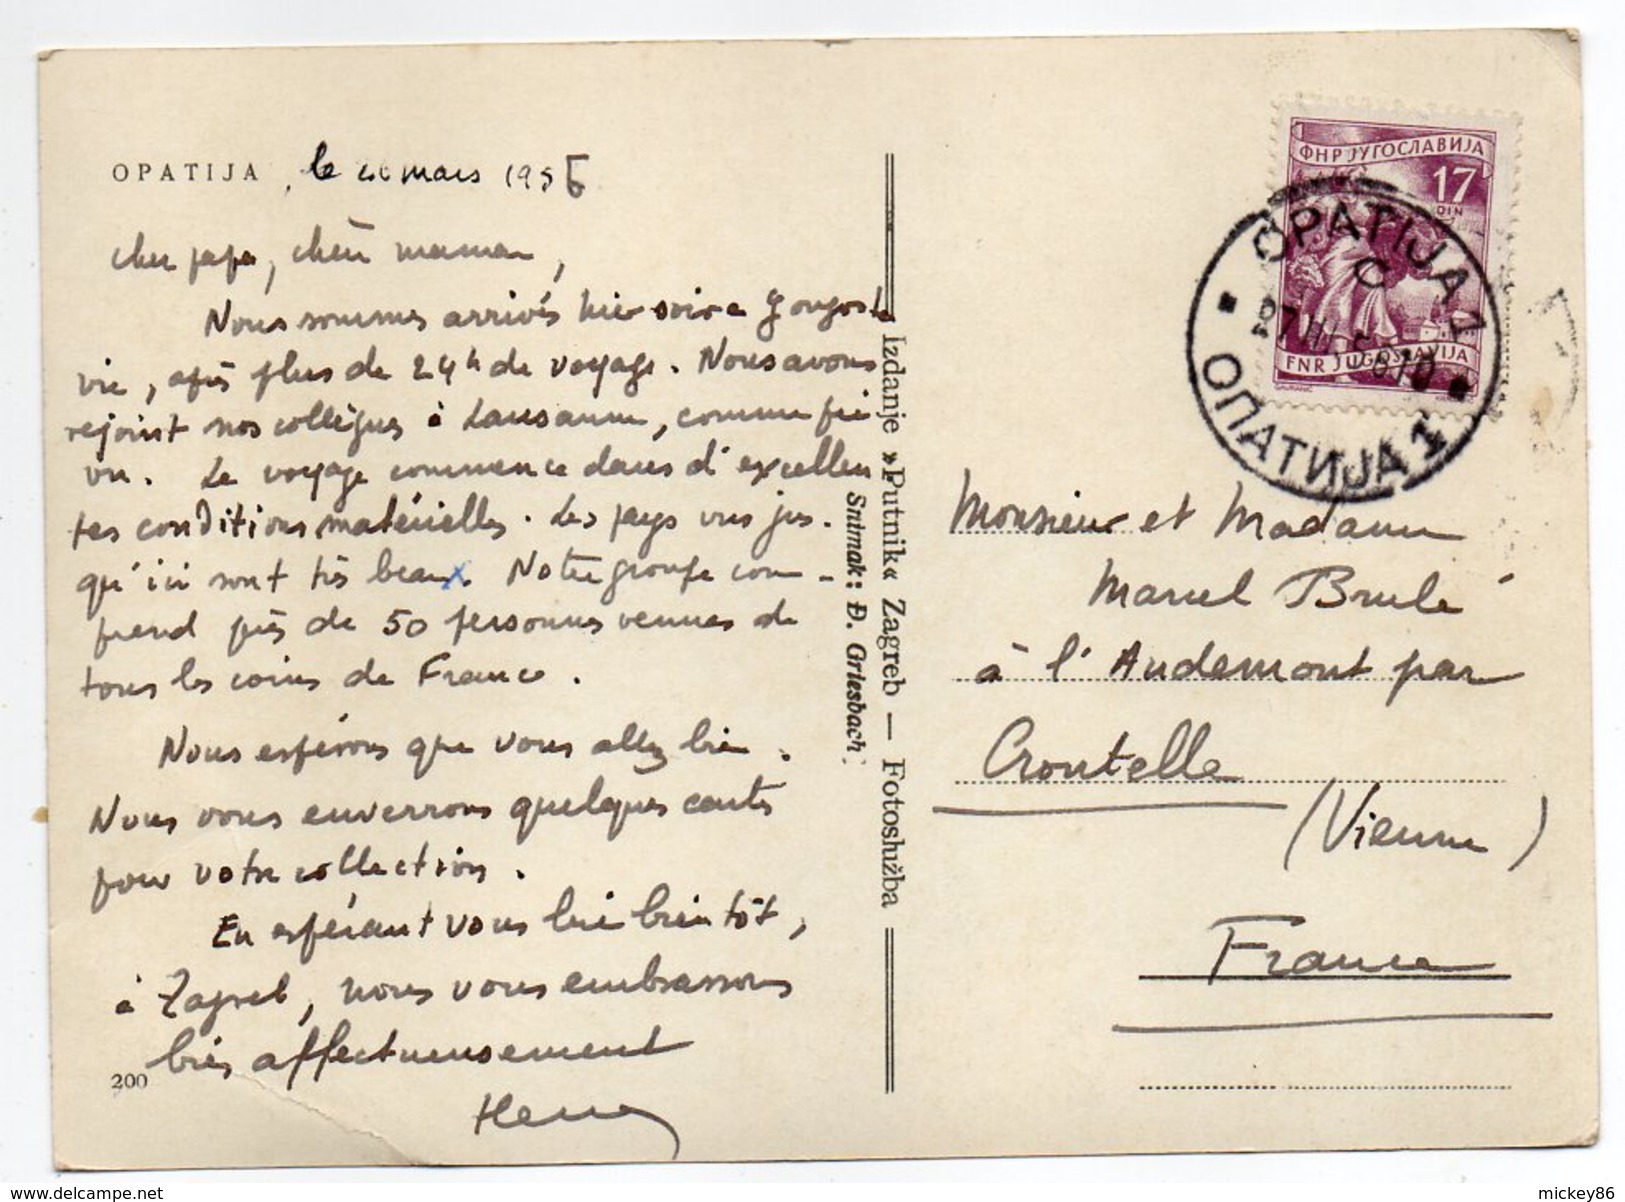 OPATIJA , le mars 1956
cher papa, chère maman,
Nous sommes arrivés hier soir à Yougosla
vie, après plus de 24h de voyage. Nous avons
rejoint nos collègues à Lausanne, comme pré
vu. Le voyage commence dans d'excellen
tes conditions matérielles. Les pays vus jus.
qu'ici sont très beaux. Notre groupe com-
prend près de 50 personnes venues de
tous les coins de France.
Nous espérons que vous allez bien.
Nous vous enverrons quelques cartes
pour votre collection.
En espérant vous lire bientôt,
à Zagreb, nous vous embrassons
bien affectueusement
200
Izdanje »Putnik« Zagreb — Fotoslužba
Snimak: Đ. Griesbach
ФНР ЈУГОСЛАВИЈА
17
DIN
FNR JUGOSLAVIJA
OPATIJA 1
C
ОПАТИЈА 1
Monsieur et Madame
Marcel Brulé
à l'Audemont par
Croutelle
(Vienne)
France
delcampe.net
mickey86